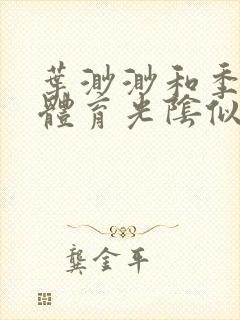 葉渺渺和季
體育光陰似
龔金平